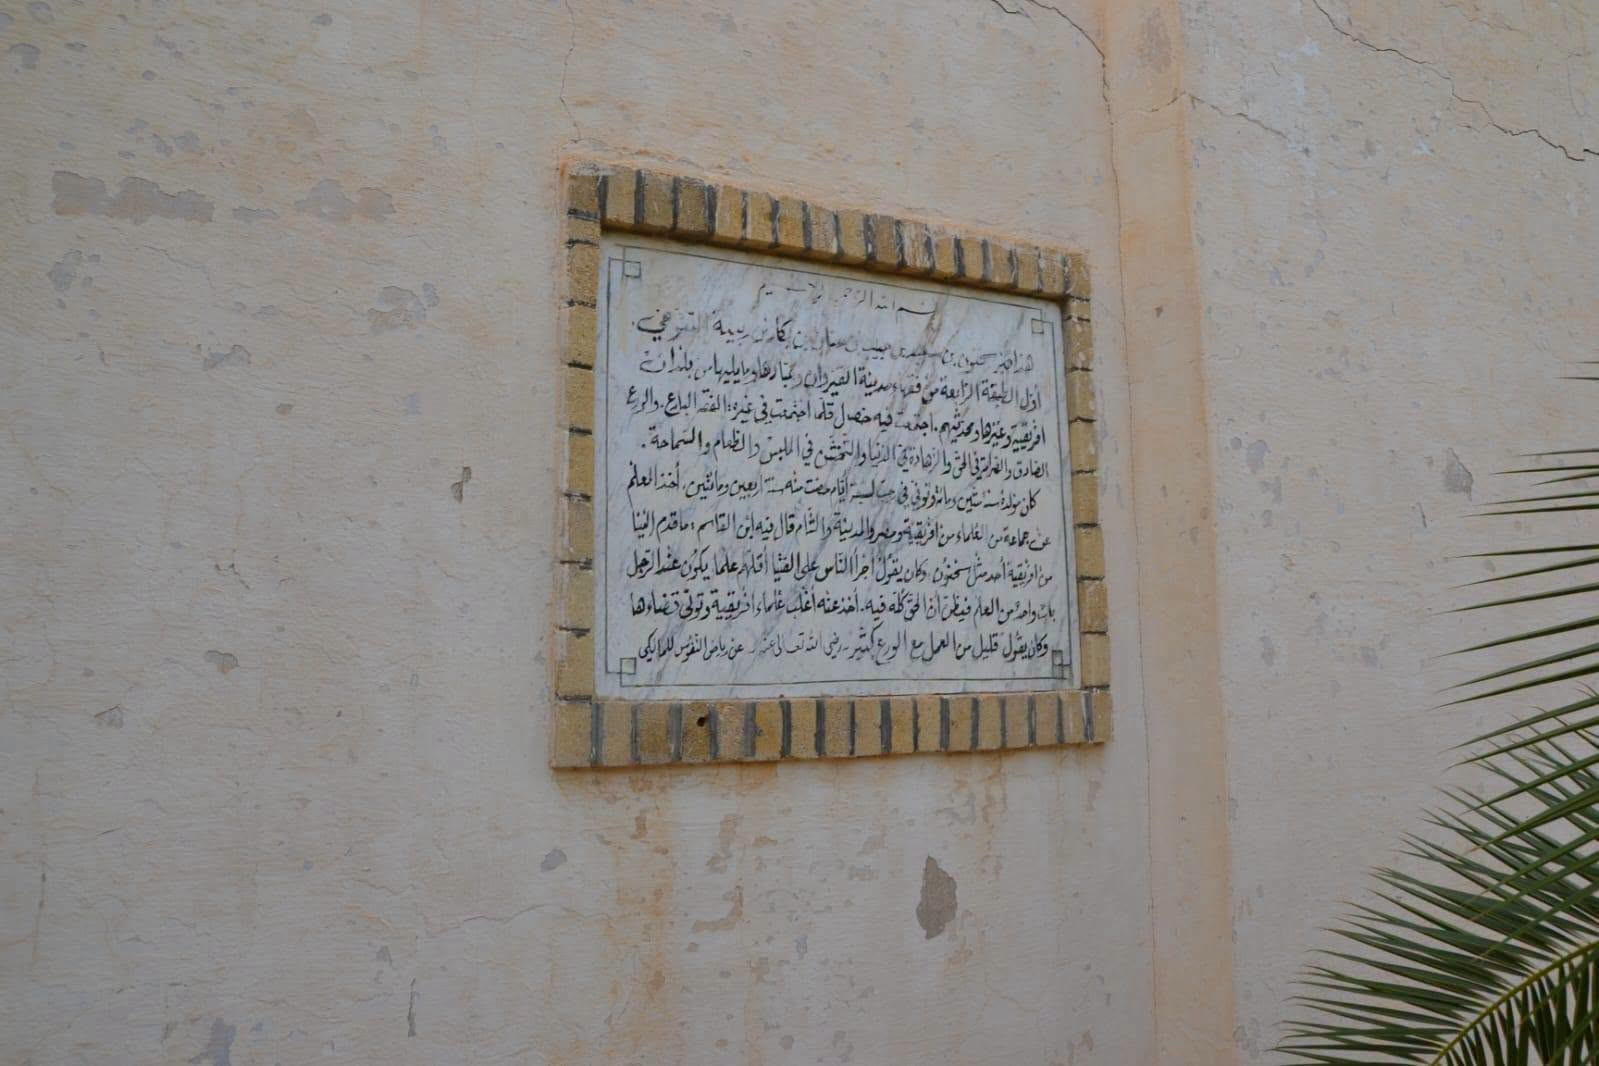 بسم الله الرحمن الرحيم
هذا قبر سحنون بن سعيد بن حبيب بن حسان بن هلال بن بكار بن ربيعة التنوخي.
أول الطبقة الرابعة من فقهاء مدينة القيروان وعبادها وما يليها من بلدان
افريقية وغيرها ومحدثيهم. اجتمعت فيه خصال قلما اجتمعت في غيره: الفقه البارع. والورع
الصادق والصرامة في الحق والزهادة في الدنيا والتخشن في الملبس والطعام والسماحة.
كان مولده سنة ستين ومائة وتوفي في رجب لستة أيام مضت منه سنة اربعين ومائتين. أخذ العلم
عن جماعة من العلماء من افريقية ومصر والمدينة والشام قال فيه ابن القاسم: ما قدم الينا
من افريقية أحد مثل سحنون. وكان يقول أجرأ الناس على الفتيا أقلهم علما يكون عند الرجل
باب واحد من العلم فيظن أن الحق كله فيه. أخذ عنه أغلب علماء افريقية وتولى قضاءها
وكان يقول قليل من العمل مع الورع كثير - رضي الله تعالى عنه - عن رياض النفوس للمالكي